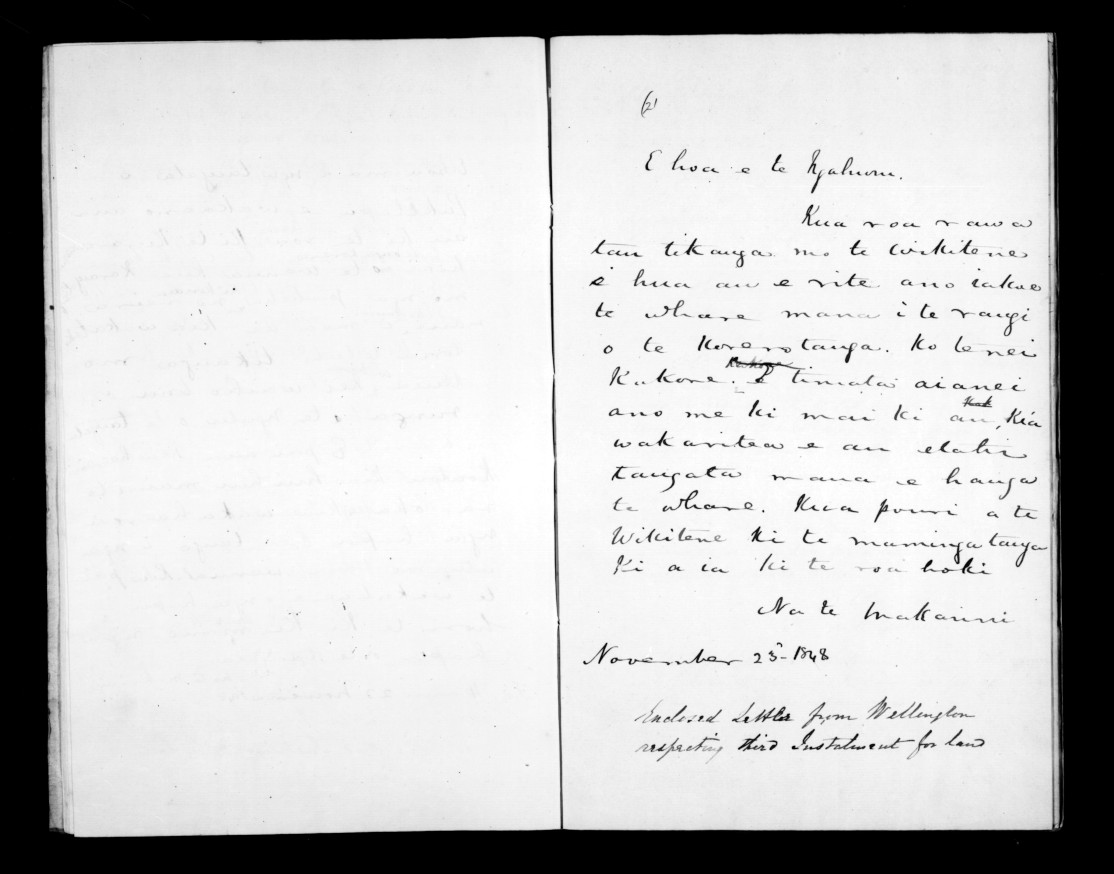 (2)
E hoa e te Ngahuru.
Kua roa rawa
tau tikanga mo te Wikitene
e hua au e rite ano iakoe
te whare mana i te rangi
o te Korerotanga. Ko tenei
Kakore. e timata aianei
ano me ki mai ki au, Kia
wakaritea e au etahi
tangata mana e hanga
te whare. Kua pouri a te
Wikitene ki te maminga tanga
Ki a ia ki te roa hoki
Na te Makarini
November 23- 1848
Enclosed Letter from Wellington
respecting third Instalment for land